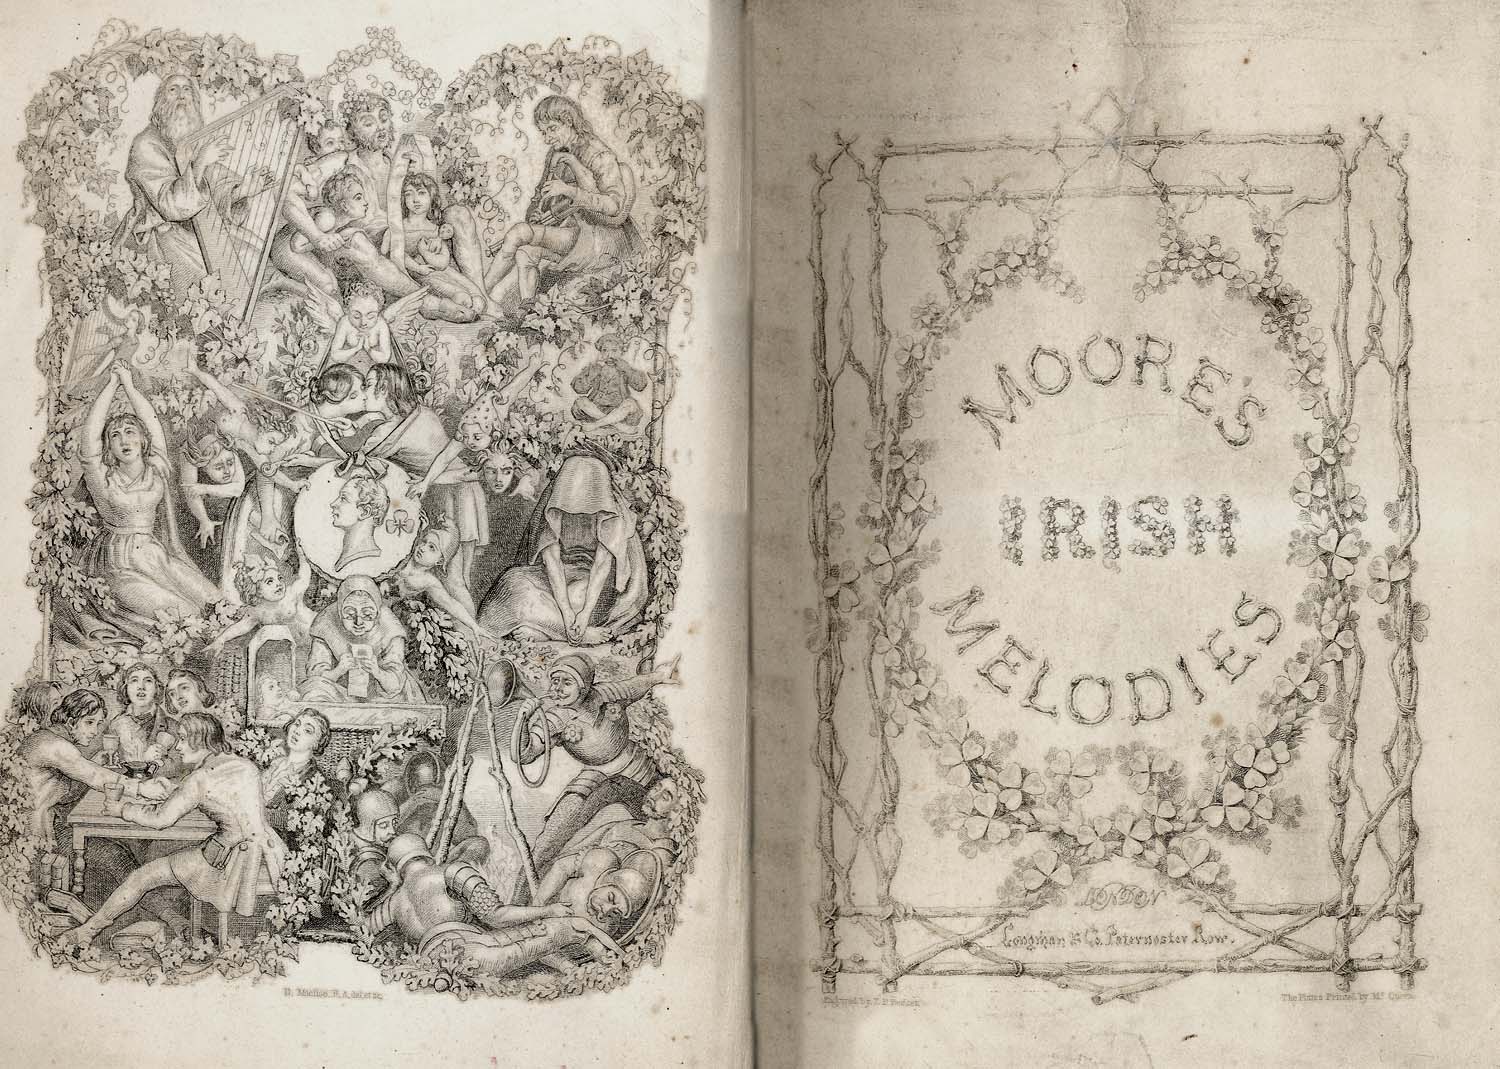 D. Maclise, R.A. del et sc.
MOORE'S
IRISH
MELODIES
LONDON
Longman & Co. Paternoster Row.
Engraved by F. P. Becker
The Plates Printed by Mr.